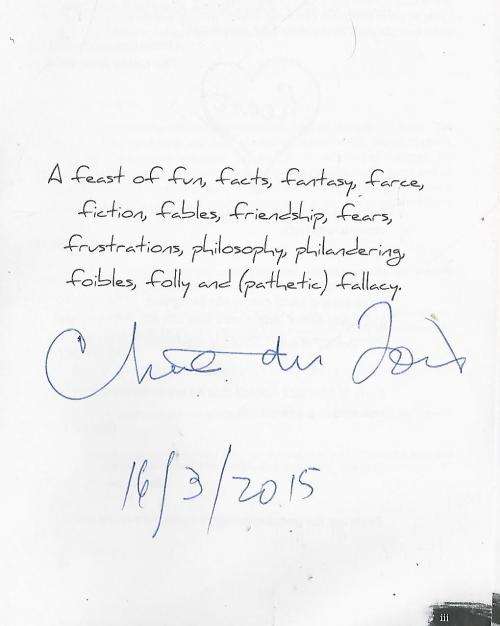 A feast of fun, facts, fantasy, farce,
fiction, fables, friendship, fears,
frustrations, philosophy, philandering,
foibles, folly and (pathetic) fallacy.
du
16/3/2015
iii